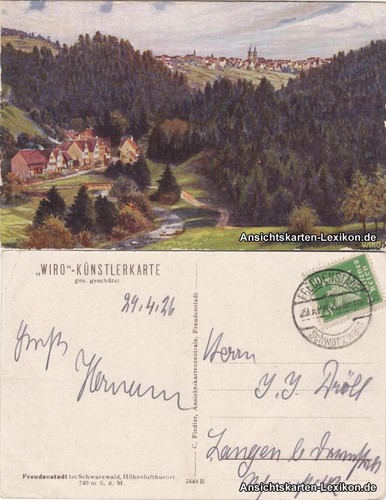 WIRO
Ansichtskarten-Lexikon.de
„WIRO“-KÜNSTLERKARTE
ges. geschützt
29.4.26
Gruß
Hermann
C. Fiedler, Ansichtskartenzentrale, Freudenstadt
FREUDENSTADT
Schwarzwald
Herrn
J. J. Dröll
Langen b/
Freudenstadt im Schwarzwald, Höhenluftkurort
740 m ü. d. M.
2449 B
Ansichtskarten-Lexikon.de